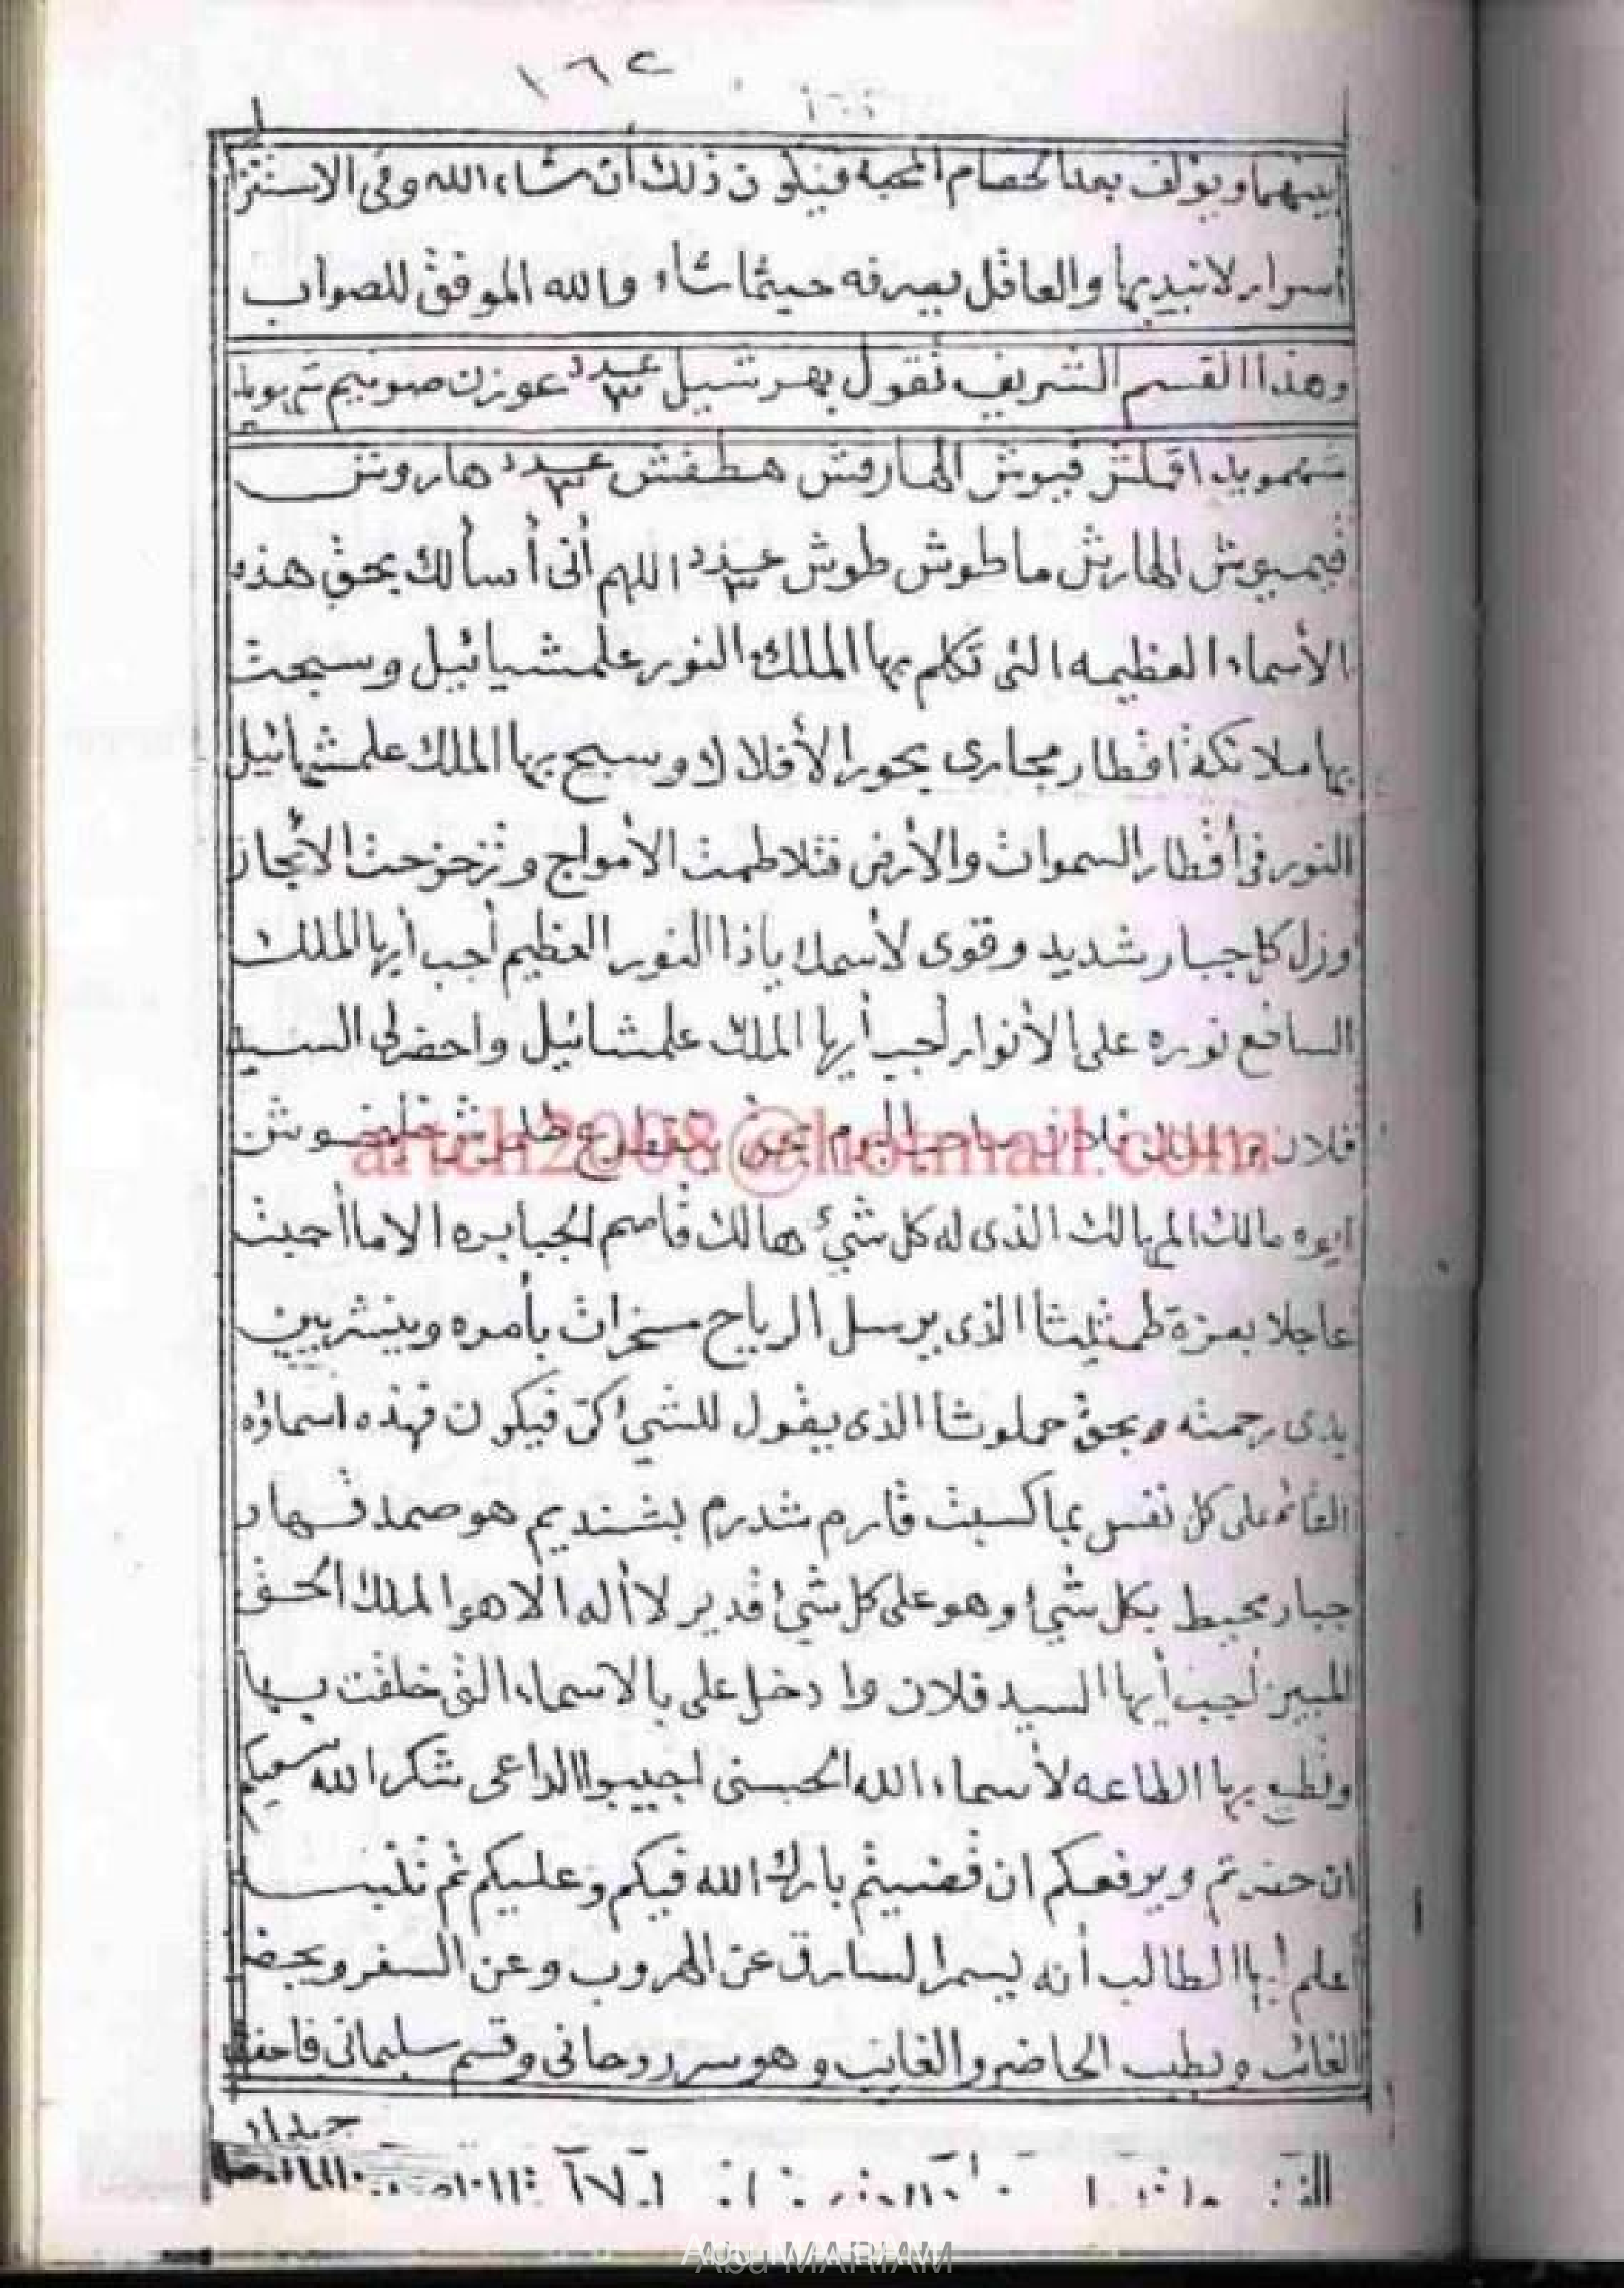 ١٦٢
بينهما ويؤلف بعد الخصام المحبه فيكون ذلك أن شاء الله وفى
أسرار لا نبديها والعاقل يصرفه حيثما شاء والله الموفق للصواب
وهذا القسم الشريف تقول بهرشيل عدد ٣ عوزن
اقملش قيوش الهارقش هطفش عدد ٣ هاروش
الهارش ماطوش طوش عدد ٣ اللهم أنى أسألك بحق هذه
الأسماء العظيمه التى تكلم بها الملك النور علمشيائيل وسبحت
بها ملائكة اقطار مجارى بحور الأفلاك وسبح بها الملك
النور فى أقطار السموات والأرض فتلاطمت الأمواج وتزحزحت
وزل كل جبار شديد وقوى لأسمك ياذا النور العظيم أجب أيها الملك
نوره على الأنوار أجب أيها الملك علمشائيل واحضر لى السيد
فلان
artch2008@hotmail.com
مالك الممالك الذى له كل شيئ هالك قاصم الجبابره الا ما أجبت
عاجلا بعزة الذى يرسل الرياح مسخرات بأمره وينشر بين
يدى رحمته وبحق حملوشا الذى يقول للشيئ كن فيكون فهذه اسماؤه
القائم على كل نفس بما كسبت قارم شدرم هو صمد قهار
جبار محيط بكل شيئ وهو على كل شيئ قدير لا أله الا هو الملك الحق
المبين أجب أيها السيد فلان وادخل على بالاسماء التى خلقت بها
وتطيع بها الطاعه لأسماء الله الحسنى اجيبوا الداعى شكر الله سعيكم
ان حضرتم ويرفعكم ان قضيتم بارك الله فيكم وعليكم ثم
أعلم أيها الطالب أنه يسمر السارق عن الهروب وعن السفر
الغائب ويطيب الحاضر والغايب وهو سر روحانى وقسم سليمانى
Abu MARIAM